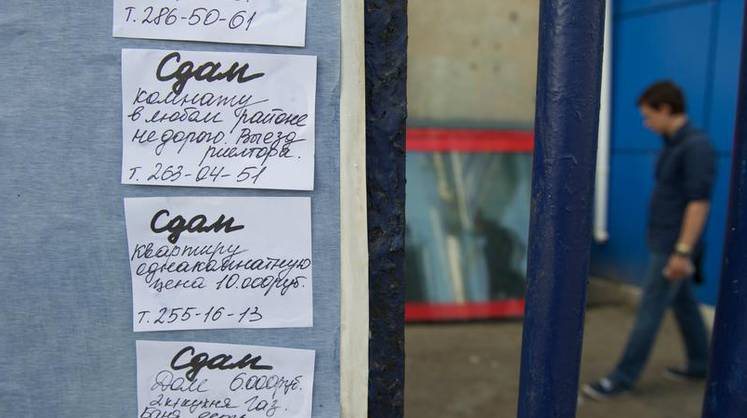 т. 286-50-61
Сдам
комнату
в любом районе
недорого. Выезд
риелтора.
т. 263-04-51
Сдам
квартиру
однакомнатную
цена 10.000руб.
т. 255-16-13
Сдам
Дом 6000руб.
2к+кухня Газ.
Баня